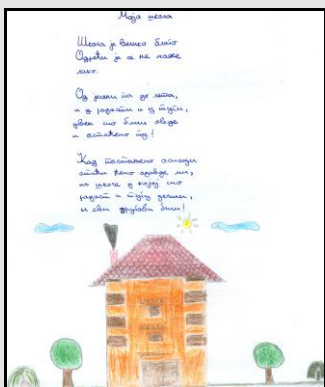 Моја школа
Школа је велико благо
Одрећи је се не може
лако.
Од јесени па до лета,
и у радости и у тузи,
увек смо били овде
и остаћемо ту!
Кад постанемо осмаци
отићи ћемо одавде ми,
из школе у којој смо
радост и тугу делили,
и сви другови били!